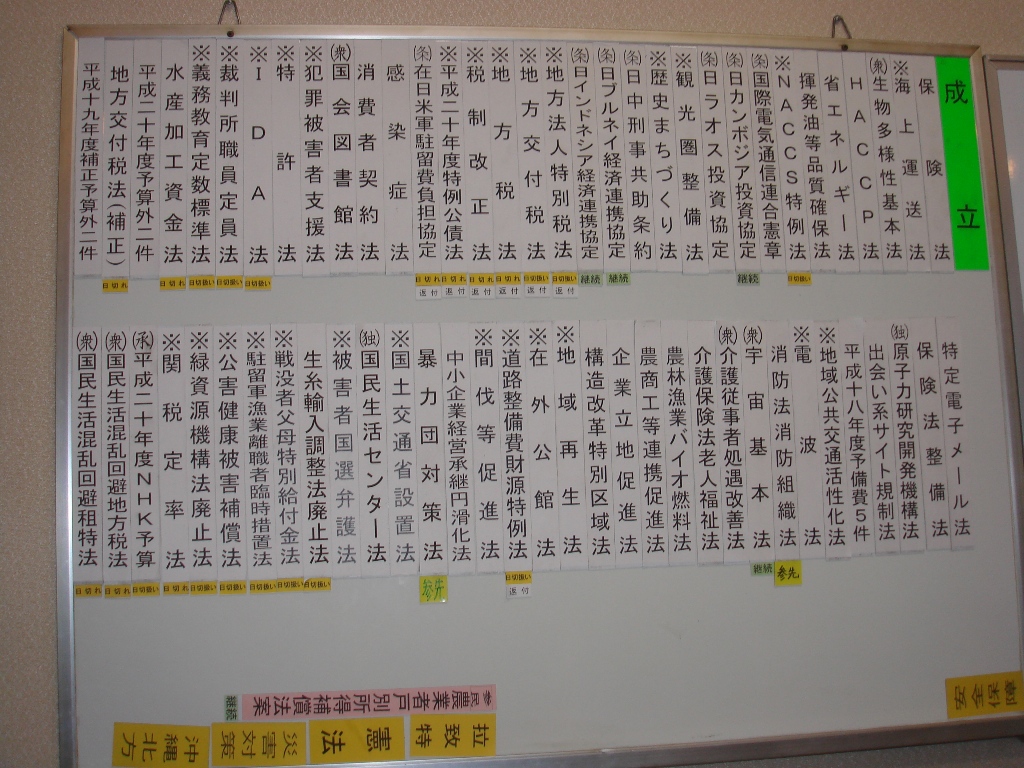 成立
保険法
※海上運送法
(衆)生物多様性基本法
HACCP法
省エネルギー法
揮発油等品質確保法
※NACCS特例法
日切扱い
(条)国際電気通信連合憲章
(条)日カンボジア投資協定
継続
(条)日ラオス投資協定
※観光圏整備法
※歴史まちづくり法
(条)日中刑事共助条約
(条)日ブルネイ経済連携協定
継続
(条)日インドネシア経済連携協定
継続
※地方法人特別税法
日切扱い
返付
※地方交付税法
日切扱い
返付
※地方税法
日切れ
返付
※税制改正法
日切れ
返付
※平成二十年度特例公債法
日切れ
返付
(条)在日米軍駐留費負担協定
日切れ
返付
感染症法
消費者契約法
(衆)国会図書館法
※犯罪被害者支援法
※特許法
※IDA法
日切扱い
※裁判所職員定員法
日切扱い
※義務教育定数標準法
日切扱い
水産加工資金法
日切れ
平成二十年度予算外二件
地方交付税法(補正)
日切れ
平成十九年度補正予算外二件
特定電子メール法
保険法整備法
(独)原子力研究開発機構法
出会い系サイト規制法
平成十八年度予備費5件
※地域公共交通活性化法
※電波法
消防法消防組織法
参先
(衆)宇宙基本法
継続
(衆)介護従事者処遇改善法
介護保険法老人福祉法
農林漁業バイオ燃料法
農商工等連携促進法
企業立地促進法
構造改革特別区域法
※地域再生法
※在外公館法
※道路整備費財源特例法
日切扱い
返付
※間伐等促進法
中小企業経営承継円滑化法
暴力団対策法
参先
※国土交通省設置法
(独)国民生活センター法
※被害者国選弁護法
生糸輸入調整法廃止法
日切扱い
※戦没者父母特別給付金法
日切扱い
※駐留軍漁業離職者臨時措置法
日切扱い
※公害健康被害補償法
日切扱い
※緑資源機構法廃止法
日切扱い
※関税定率法
日切れ
(承)平成二十年度NHK予算
日切扱い
(衆)国民生活混乱回避地方税法
日切れ
(衆)国民生活混乱回避租特法
日切れ
参民農業者戸別所得補償法案
継続
拉致特
憲法
災害対策
沖縄北方
安全保障